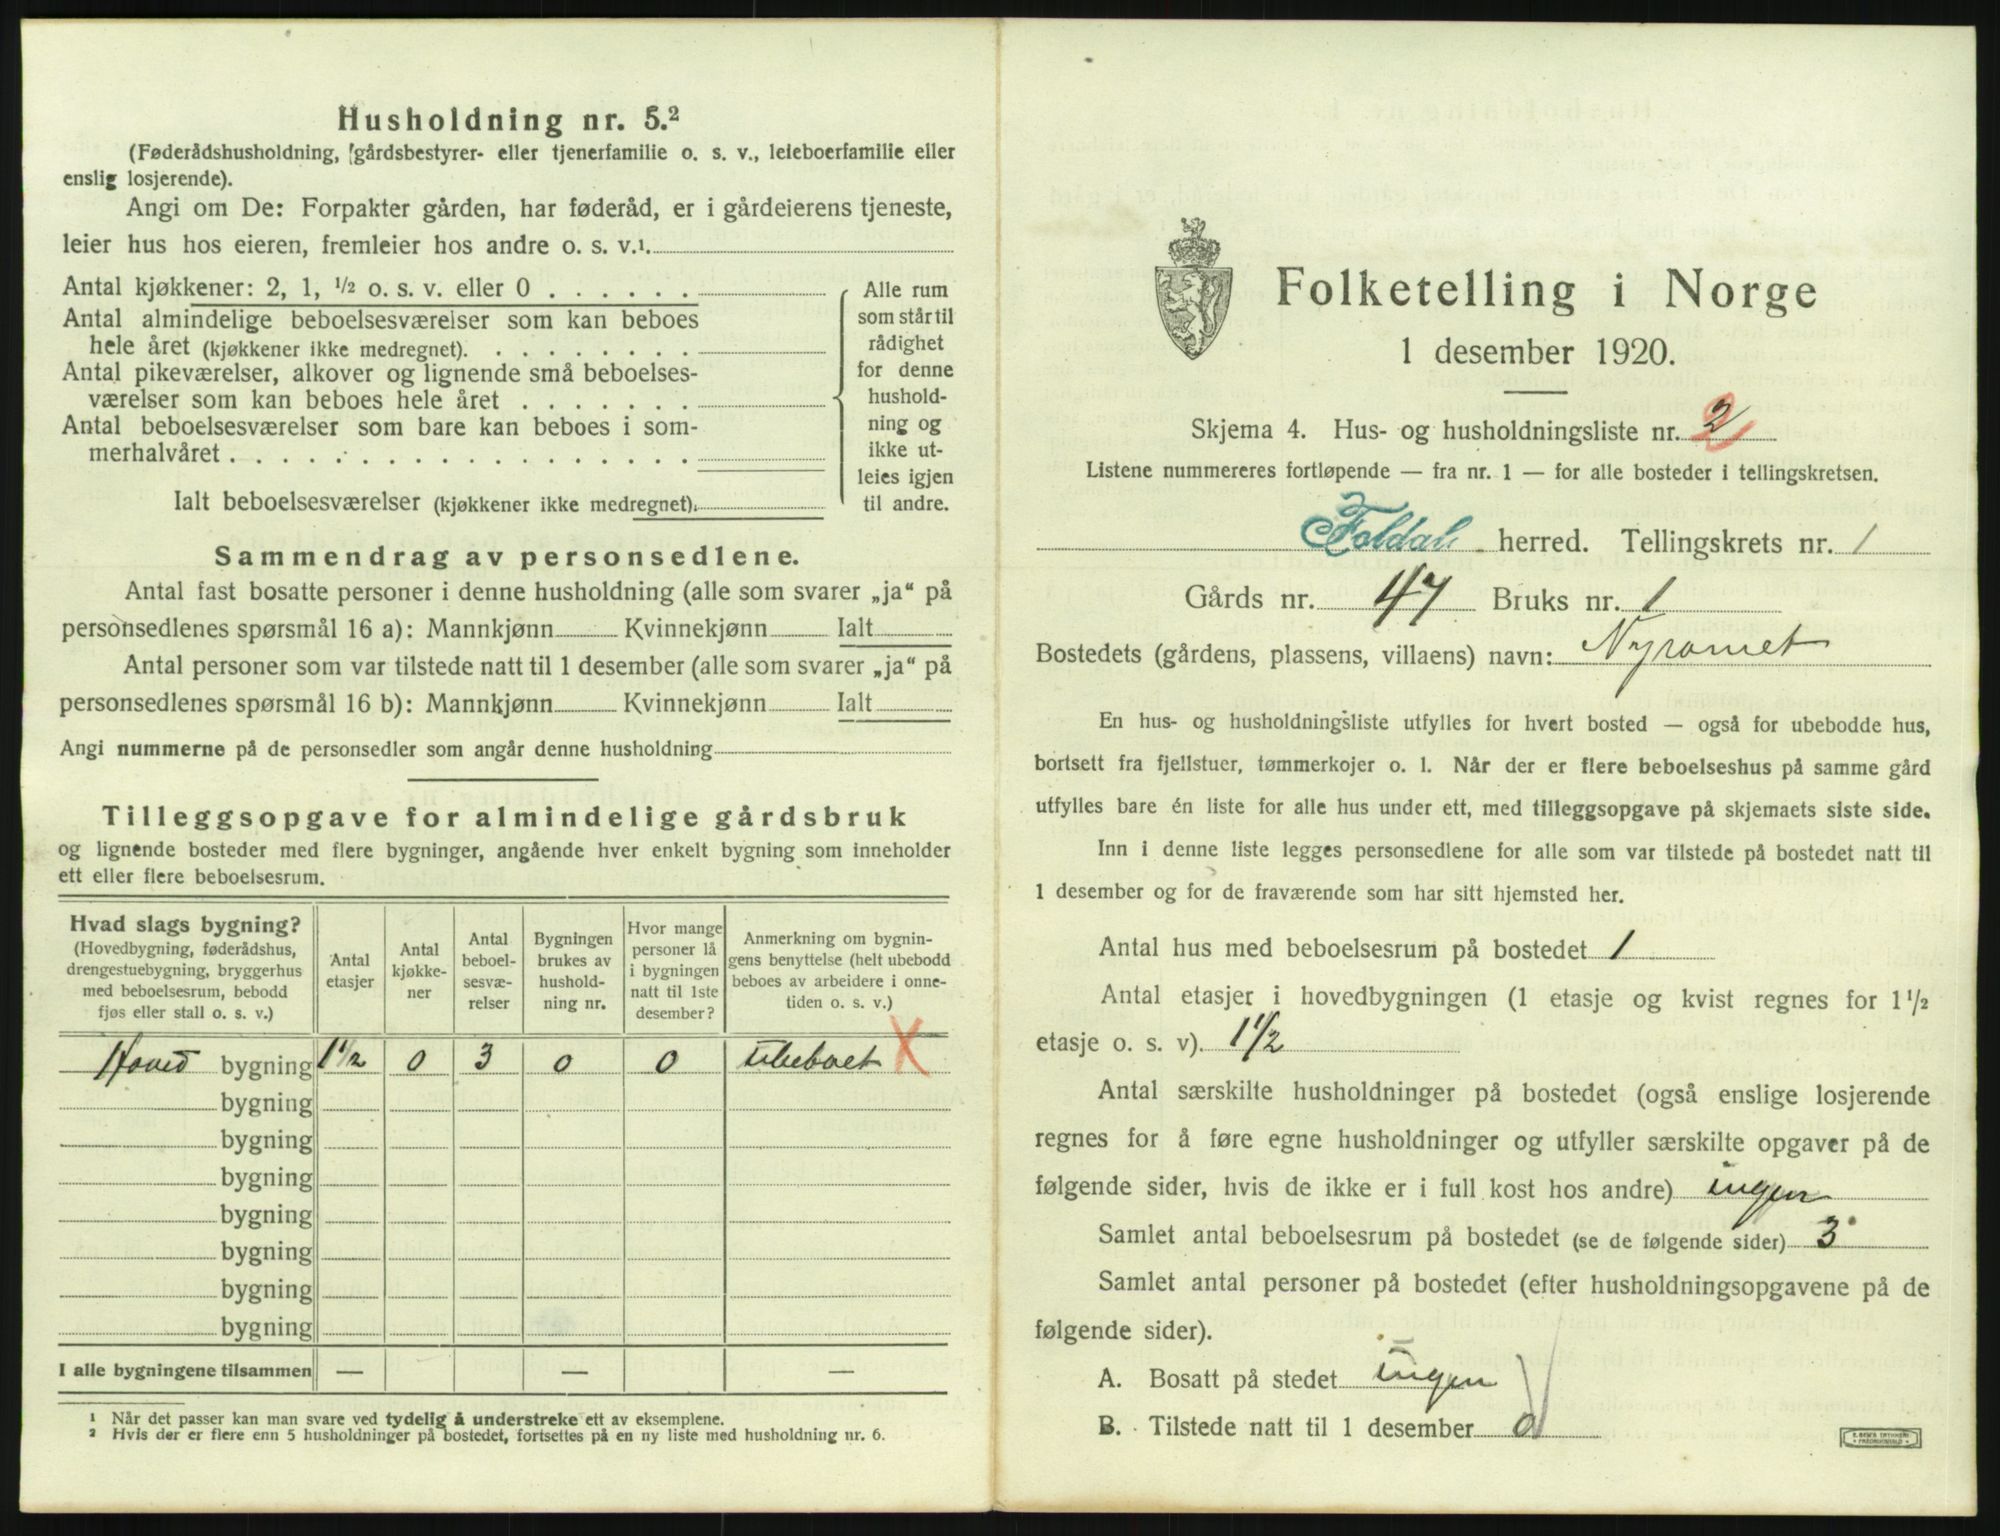 Husholdning nr. 5.²
(Føderådshusholdning, gårdsbestyrer- eller tjenerfamilie o. s. v., leieboerfamilie eller
enslig losjerende).
Angi om De: Forpakter gården, har føderåd, er i gårdeierens tjeneste,
leier hus hos eieren, fremleier hos andre o. s. v.¹
Antal kjøkkener: 2, 1, ½ o. s. v. eller 0 . . . . . .
Antal almindelige beboelsesværelser som kan beboes
hele året (kjøkkener ikke medregnet). . . . . . . . .
Antal pikeværelser, alkover og lignende små beboelses-
værelser som kan beboes hele året . . . . . . .
Antal beboelsesværelser som bare kan beboes i som-
merhalvåret . . . . . . . . . . . . . . . . . .
Ialt beboelsesværelser (kjøkkener ikke medregnet).
Alle rum
som står til
rådighet
for denne
hushold-
ning og
ikke ut-
leies igjen
til andre.
Sammendrag av personsedlene.
Antal fast bosatte personer i denne husholdning (alle som svarer „ja“ på
personsedlenes spørsmål 16 a): Mannkjønn Kvinnekjønn Ialt
Antal personer som var tilstede natt til 1 desember (alle som svarer „ja“ på
personsedlenes spørsmål 16 b): Mannkjønn Kvinnekjønn Ialt
Angi nummerne på de personsedler som angår denne husholdning
Tilleggsopgave for almindelige gårdsbruk
og lignende bosteder med flere bygninger, angående hver enkelt bygning som inneholder
ett eller flere beboelsesrum.
Hvad slags bygning?
(Hovedbygning, føderådshus,
drengestuebygning, bryggerhus
med beboelsesrum, bebodd
fjøs eller stall o. s. v.)
Antal
etasjer
Antal
kjøkke-
ner
Antal
beboel-
sesvæ-
relser
Bygningen
brukes av
hushold-
ning nr.
Hvor mange
personer lå
i bygningen
natt til 1ste
desember?
Anmerkning om bygnin-
gens benyttelse (helt ubebodd
beboes av arbeidere i onne-
tiden o. s. v.)
Hoved bygning 1½ 0 3 0 0 ubeboet X
bygning
bygning
bygning
bygning
bygning
bygning
bygning
I alle bygningene tilsammen — — —
¹ Når det passer kan man svare ved tydelig å understreke ett av eksemplene.
² Hvis der er flere enn 5 husholdninger på bostedet, fortsettes på en ny liste med husholdning nr. 6.
Folketelling i Norge
1 desember 1920.
Skjema 4. Hus- og husholdningsliste nr. 2
Listene nummereres fortløpende — fra nr. 1 — for alle bosteder i tellingskretsen.
Foldal herred. Tellingskrets nr. 1
Gårds nr. 47 Bruks nr. 1
Bostedets (gårdens, plassens, villaens) navn: Nyromet
En hus- og husholdningsliste utfylles for hvert bosted — også for ubebodde hus,
bortsett fra fjellstuer, tømmerkojer o. l. Når der er flere beboelseshus på samme gård
utfylles bare én liste for alle hus under ett, med tilleggsopgave på skjemaets siste side.
Inn i denne liste legges personsedlene for alle som var tilstede på bostedet natt til
1 desember og for de fraværende som har sitt hjemsted her.
Antal hus med beboelsesrum på bostedet 1
Antal etasjer i hovedbygningen (1 etasje og kvist regnes for 1½
etasje o. s. v). 1½
Antal særskilte husholdninger på bostedet (også enslige losjerende
regnes for å føre egne husholdninger og utfyller særskilte opgaver på de
følgende sider, hvis de ikke er i full kost hos andre) ingen
Samlet antal beboelsesrum på bostedet (se de følgende sider) 3
Samlet antal personer på bostedet (efter husholdningsopgavene på de
følgende sider).
A. Bosatt på stedet ingen
B. Tilstede natt til 1 desember 0